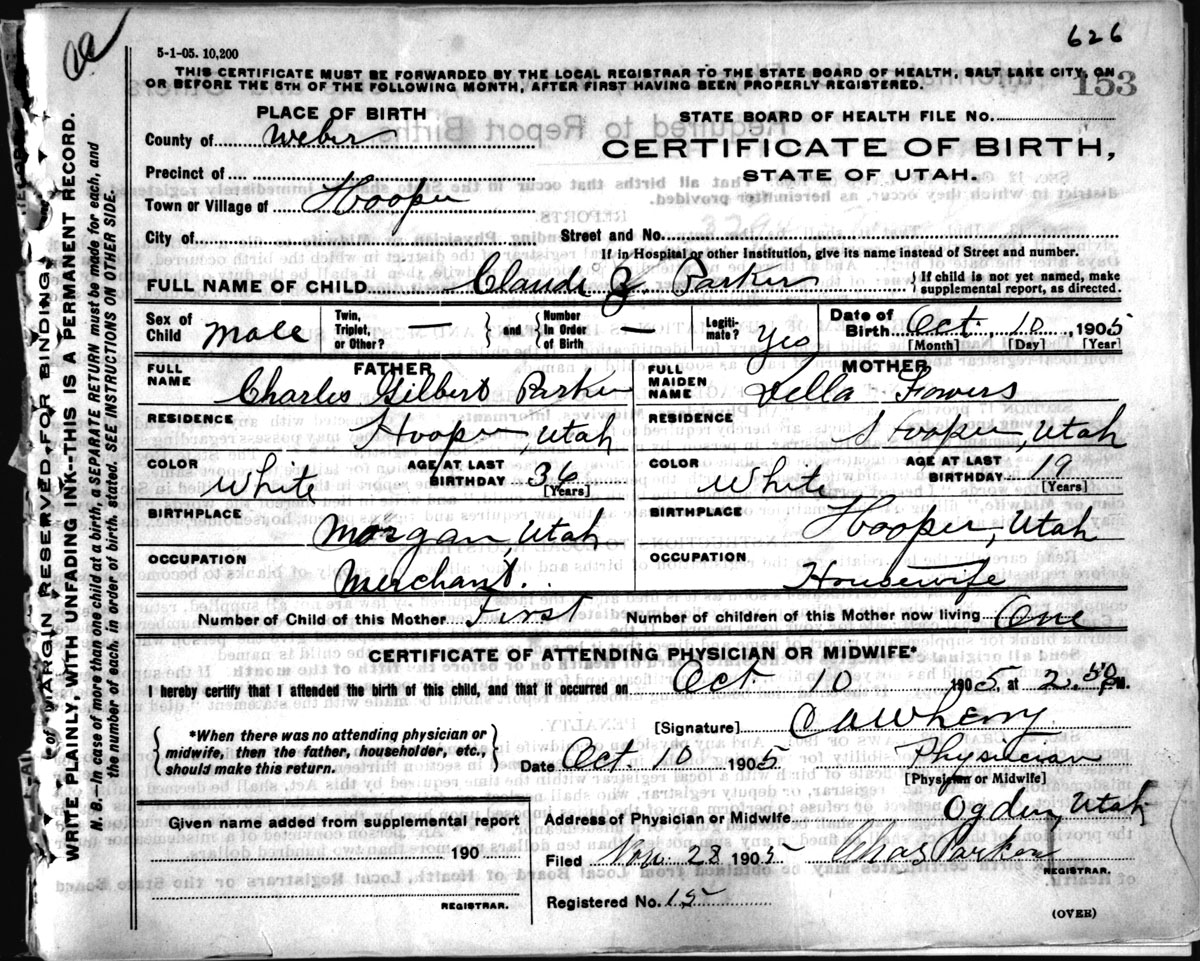 626
5-1-05. 10,200
THIS CERTIFICATE MUST BE FORWARDED BY THE LOCAL REGISTRAR TO THE STATE BOARD OF HEALTH, SALT LAKE CITY, ON
OR BEFORE THE 5TH OF THE FOLLOWING MONTH, AFTER FIRST HAVING BEEN PROPERLY REGISTERED.
153
PLACE OF BIRTH
STATE BOARD OF HEALTH FILE NO.
County of Weber
CERTIFICATE OF BIRTH,
STATE OF UTAH.
Precinct of
Town or Village of Hooper
City of Street and No.
If in Hospital or other Institution, give its name instead of Street and number.
FULL NAME OF CHILD Claude Parker { If child is not yet named, make supplemental report, as directed.
Sex of Child Male Twin, Triplet, or Other? — } and { Number In Order of Birth — Legitimate? Yes Date of Birth Oct. 10, 1905
[Month] [Day] [Year]
FATHER MOTHER
FULL NAME Charles Gilbert Parker FULL MAIDEN NAME Della Fowers
RESIDENCE Hooper, Utah RESIDENCE Hooper, Utah
COLOR White AGE AT LAST BIRTHDAY 36 [Years] COLOR White AGE AT LAST BIRTHDAY 19 [Years]
BIRTHPLACE Morgan, Utah BIRTHPLACE Hooper, Utah
OCCUPATION Merchant. OCCUPATION Housewife
Number of Child of this Mother First Number of children of this Mother now living One
CERTIFICATE OF ATTENDING PHYSICIAN OR MIDWIFE*
I hereby certify that I attended the birth of this child, and that it occurred on Oct. 10 1905, at 2.50 P.M.
{ *When there was no attending physician or midwife, then the father, householder, etc., should make this return. }
[Signature] C A Wherry
Physician
Date Oct. 10 1905 [Physician or Midwife]
Given name added from supplemental report
190
REGISTRAR.
Address of Physician or Midwife Ogden, Utah
Filed Nov. 28 1905 Chas Parker
REGISTRAR.
Registered No. 15
(OVER)
of MARGIN RESERVED FOR BINDING
WRITE PLAINLY, WITH UNFADING INK--THIS IS A PERMANENT RECORD.
N. B.—In case of more than one child at a birth, a SEPARATE RETURN must be made for each, and
the number of each, in order of birth, stated. SEE INSTRUCTIONS ON OTHER SIDE.